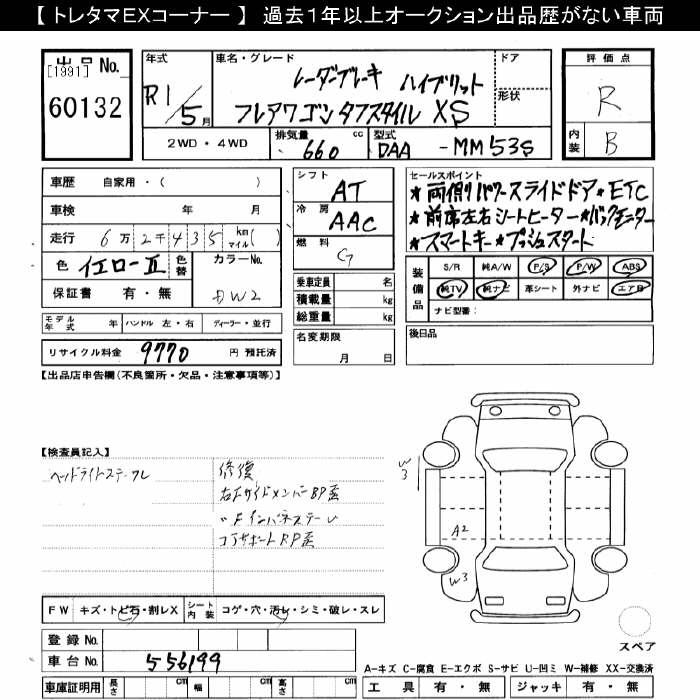 【 トレタマEXコーナー 】 過去1年以上オークション出品歴がない車両
出品 No.
[1991]
60132
年式
R1/5月
車名・グレード
レーダーブレーキ ハイブリット
フレアワゴン タフスタイル XS
ドア
形状
評価点
R
内装
B
2WD・4WD
排気量
660 cc
型式
DAA - MM53S
車歴 自家用・( )
車検 年 月
走行 6万2千435 km マイル( )
色 イエローII
色替
カラーNo.
DW2
保証書 有・無
モデル年式 年 ハンドル 左・右 ディーラー・並行
リサイクル料金 9770 円 預託済
シフト
AT
冷房
AAC
燃料
G
乗車定員 名
積載量 kg
総重量 kg
名変期限
月 日
セールスポイント
★両側パワースライドドア★ETC
★前席左右シートヒーター★バックモニター
★スマートキー★プッシュスタート
装備品
S/R 純A/W P/S P/W ABS
純TV 純ナビ 革シート 外ナビ エアB
ナビ型番:
後日品
【出品店申告欄(不良箇所・欠品・注意事項等)】
【検査員記入】
ヘッドライトステーズレ
修復
右Fサイドメンバー BP歪
〃Fインパネステーレ
コアサポートRP歪
W3
A2
W3
FW キズ・トビ石・割レX
シート内装 コゲ・穴・汚レ・シミ・破レ・スレ
登録 No.
車台 No. 556199
車庫証明用 長さ cm 幅 cm 高さ cm
スペア
A-キズ C-腐食 E-エクボ S-サビ U-凹ミ W-補修 XX-交換済
工具 有・無 ジャッキ 有・無